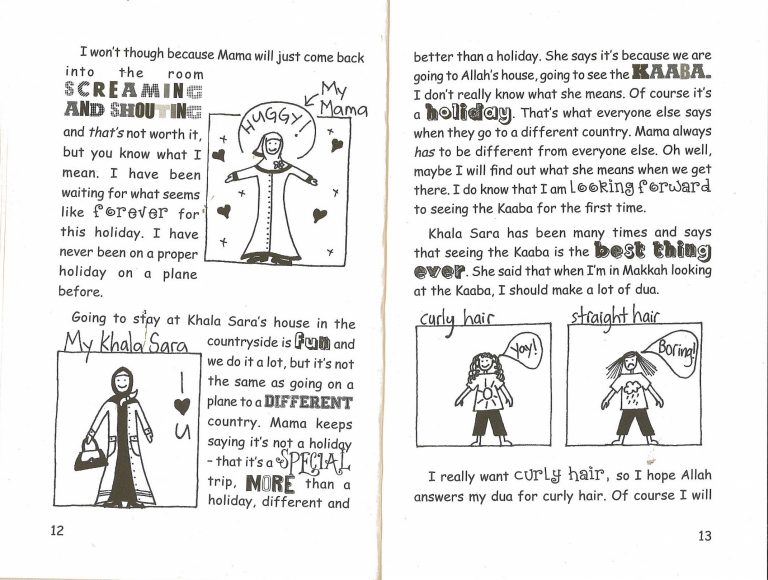 I won't though because Mama will just come back
into the room
SCREAMING
AND SHOUTING
and that's not worth it,
but you know what I
mean. I have been
waiting for what seems
like forever for
this holiday. I have
never been on a proper
holiday on a plane
before.
My
Mama
HUGGY!
Going to stay at Khala Sara's house in the
countryside is fun and
we do it a lot, but it's not
the same as going on a
plane to a DIFFERENT
country. Mama keeps
saying it's not a holiday
– that it's a SPECIAL
trip, MORE than a
holiday, different and
My Khala Sara
I
♥
U
12
better than a holiday. She says it's because we are
going to Allah's house, going to see the KAABA.
I don't really know what she means. Of course it's
a holiday. That's what everyone else says
when they go to a different country. Mama always
has to be different from everyone else. Oh well,
maybe I will find out what she means when we get
there. I do know that I am looking forward
to seeing the Kaaba for the first time.
Khala Sara has been many times and says
that seeing the Kaaba is the best thing
ever. She said that when I'm in Makkah looking
at the Kaaba, I should make a lot of dua.
curly hair
Yay!
straight hair
Boring!
I really want curly hair, so I hope Allah
answers my dua for curly hair. Of course I will
13